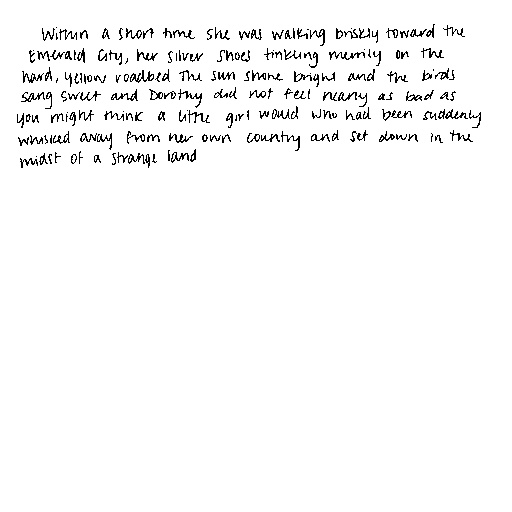 Within a short time she was walking briskly toward the
Emerald City, her Silver Shoes tinkling merrily on the
hard, yellow roadbed The sun shone bright and the birds
sang sweet and Dorothy did not feel nearly as bad as
you might think a little girl would who had been suddenly
whisked away from her own country and set down in the
midst of a strange land